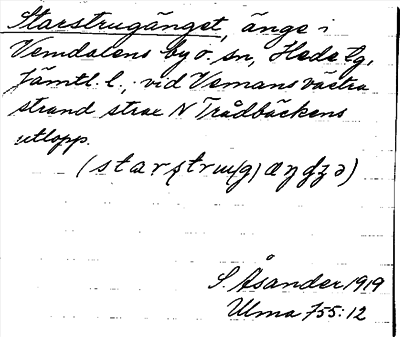 Starstrugänget, änge i
Vemdalens by o. sn, Hede tg,
Jämtl. l., vid Vemans västra
strand strax N Trådbäckens
utlopp.
(starstru(g)æŋdʒə)
S. Åsander 1919
Ulma 755:12